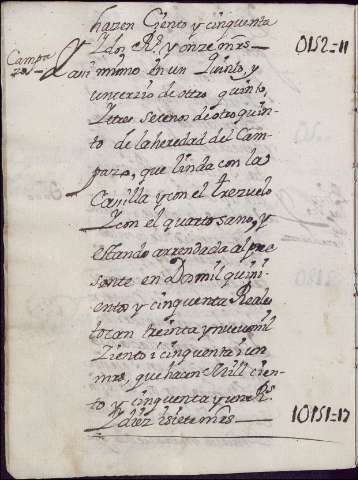 hazen Ciento y cinquenta
y dos Rs. y onze mrs— 0152=11
Campa
zo—
Y asi mismo en un quinto, y
un tercio de otro quinto,
y tres secenos de otro quin-
to de la heredad del Cam-
pazo, que linda con la
Canilla y con el trezuelo
y con el quarto sano, y
estando arrendada al pre
sente en Dosmil quini-
entos y cinquenta Reales
tocan treinta y nuevemil
Ziento i cinquenta i un
mrs, que hacen Mill cien-
to y cinquenta y un Rs.
y diez i siete mrs— 10151=17